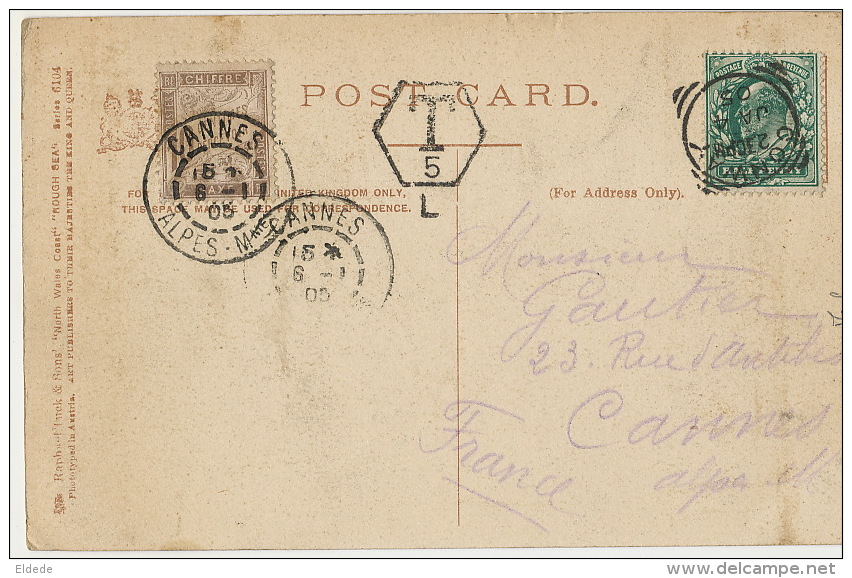 POST CARD.
CHIFFRE
TAXE
T
5
L
POSTAGE REVENUE
HALFPENNY
JA
05
CANNES
5
6 - 1
05
ALPES-Mmes
CANNES
5
6 - 1
05
THIS SPACE MAY BE USED FOR CORRESPONDENCE.
UNITED KINGDOM ONLY,
(For Address Only).
Monsieur
Gautier
23. Rue d'Antibes
Cannes
France
alpes M
Raphael Tuck & Sons' "North Wales Coast" "ROUGH SEA" Series 6104
Phototyped in Austria. ART PUBLISHERS TO THEIR MAJESTIES THE KING AND QUEEN.
Eldede
delcampe.net